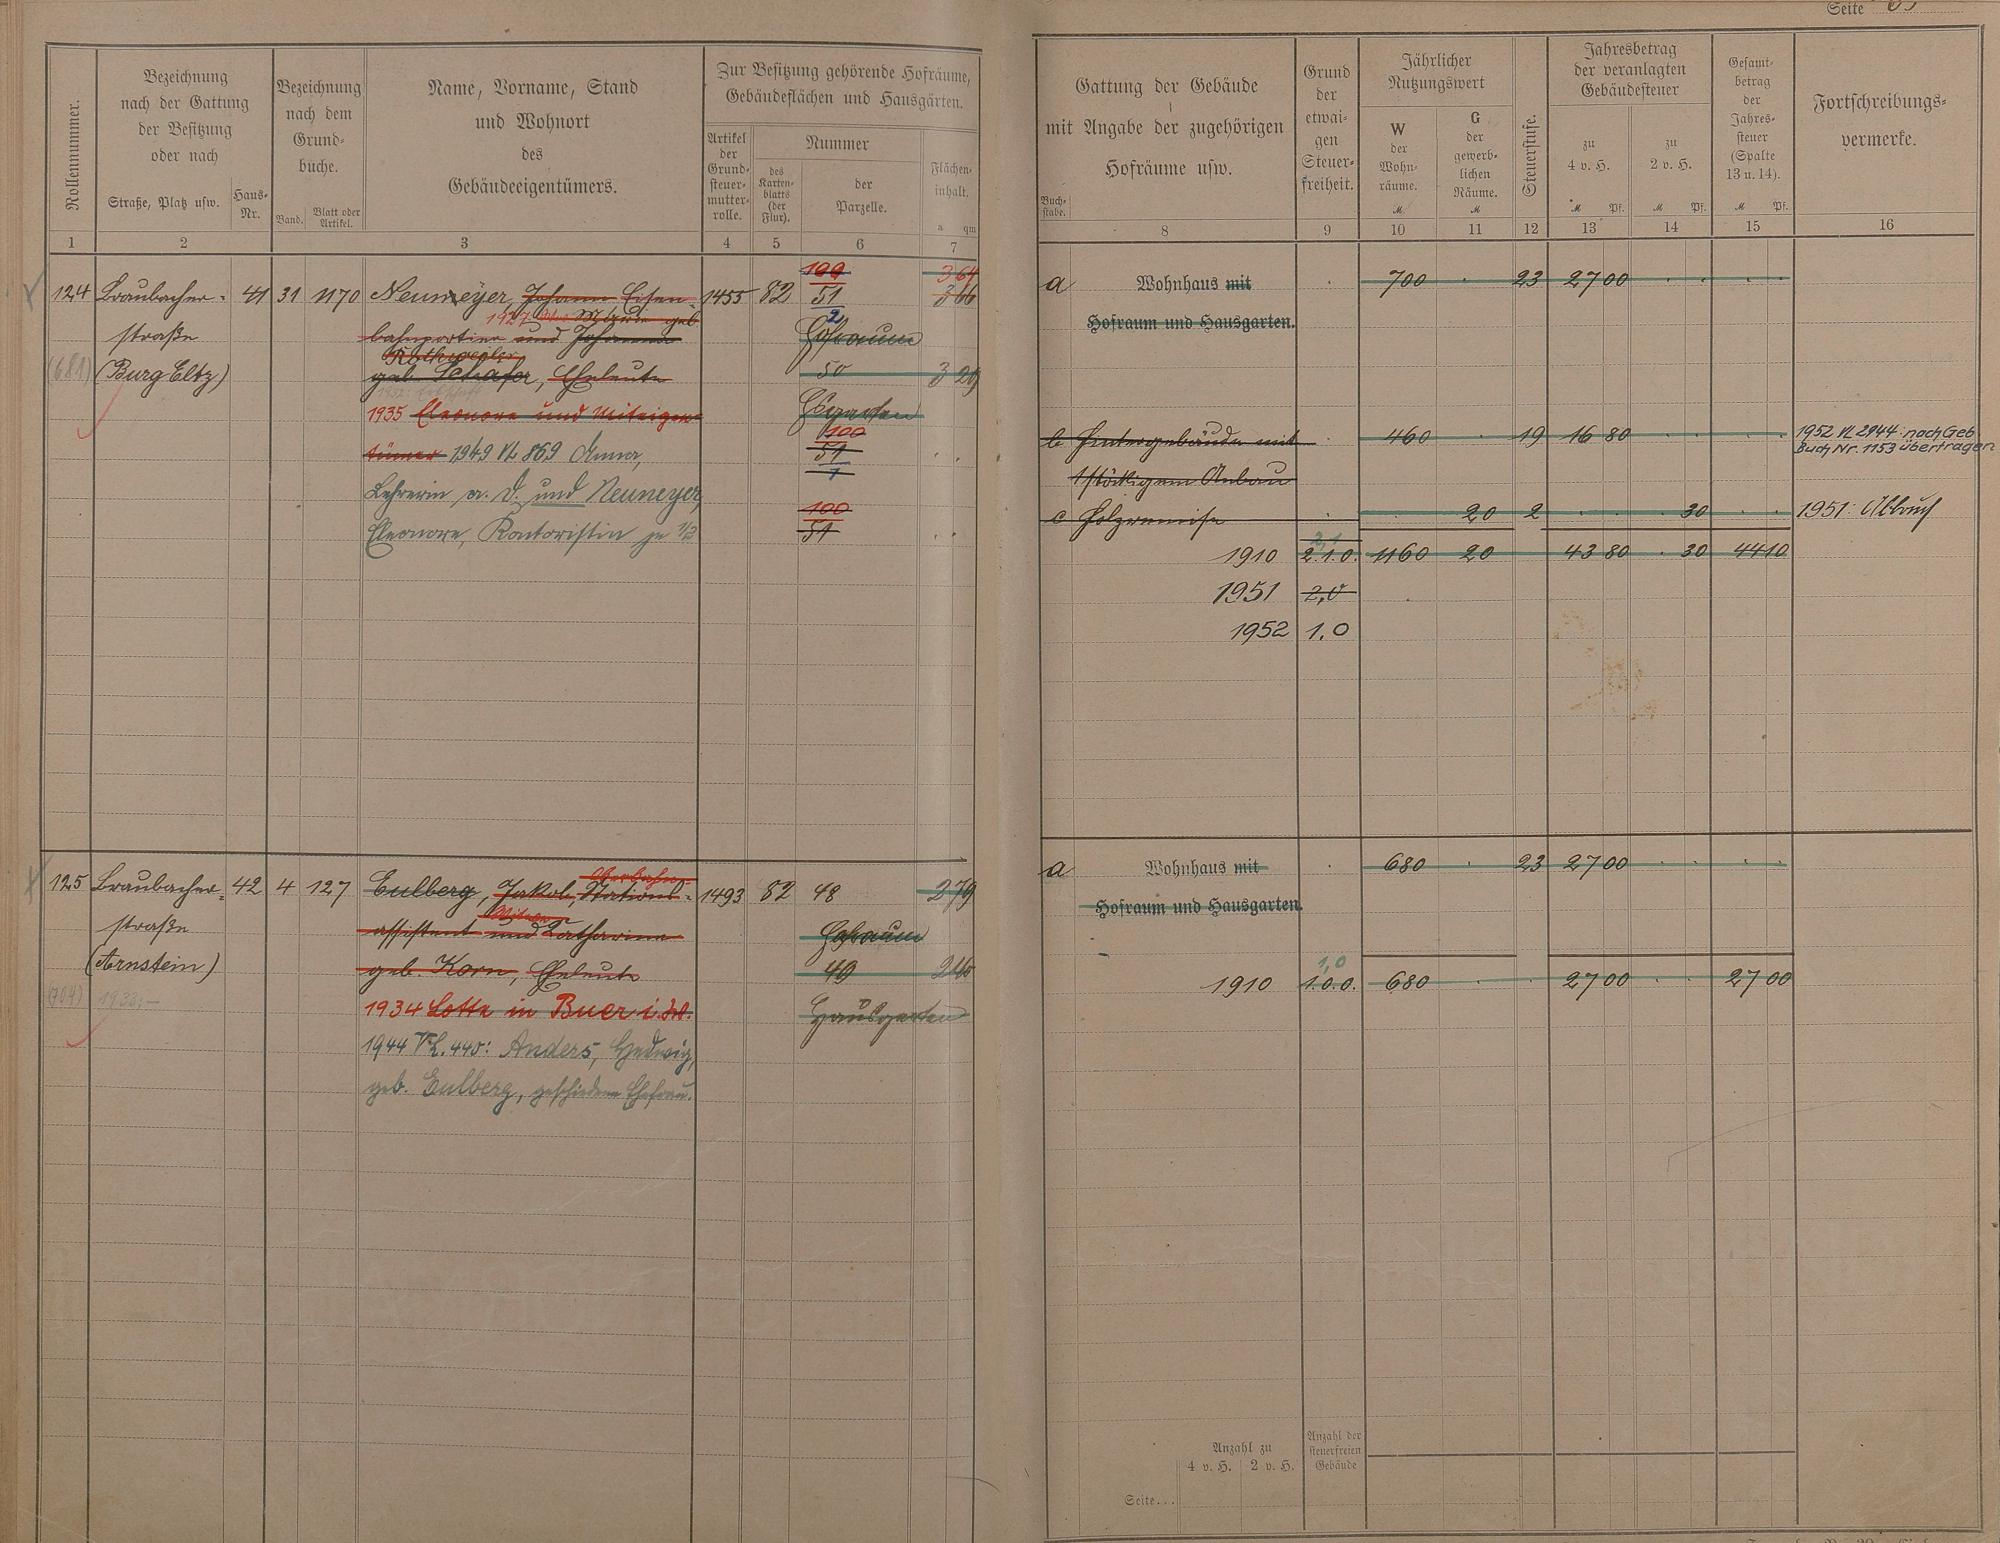 Seite
Rollennummer.
Bezeichnung
nach der Gattung
der Besitzung
oder nach
Straße, Platz usw.
Haus-
Nr.
Bezeichnung
nach dem
Grund-
buche.
Band.
Blatt oder
Artikel.
Name, Vorname, Stand
und Wohnort
des
Gebäudeeigentümers.
Zur Besitzung gehörende Hofräume,
Gebäudeflächen und Hausgärten.
Artikel
der
Grund-
steuer-
mutter-
rolle.
Nummer
des
Karten-
blatts
(der
Flur).
der
Parzelle.
Flächen-
inhalt.
a qm
1 2 3 4 5 6 7
124 Braubacher- 41 31 1170 Neumeyer, Johann Eisen- 1455 82 100 3 64
51 3 66
2
straße
1927
Marie geb.
bahnportier und Johanna
Hofraum
(681) (Burg Eltz)
Rothweiler
geb. Schäfer, Eheleute 50 3 29
1935 Eleonore und Miteigen-
Hsgarten
tümer 1949 VL 869 Anna,
100
51
1
Lehrerin a. D. und Neumeyer,
Eleonore, Kontoristin je 1/2
100
51
125 Braubacher- 42 4 127 Eulberg, Jakob, Stations- 1493 82 48 2 79
Oberbahn-
straße
Witwe
assistent und Katharina
Hofraum
(Arnstein) geb. Korn, Eheleute 49 2 46
(704) 1933:-
1934 Lotte in Buer i. W.
Hausgarten
1944 V.L. 440: Anders, Hedwig,
geb. Eulberg, geschiedene Ehefrau.
Buch-
stabe.
Gattung der Gebäude
mit Angabe der zugehörigen
Hofräume usw.
Grund
der
etwai-
gen
Steuer-
freiheit.
Jährlicher
Nutzungswert
W
der
Wohn-
räume.
M
G
der
gewerb-
lichen
Räume.
M
Steuerstufe.
Jahresbetrag
der veranlagten
Gebäudesteuer
zu
4 v. H.
M Pf.
zu
2 v. H.
M Pf.
Gesamt-
betrag
der
Jahres-
steuer
(Spalte
13 u. 14).
M Pf.
Fortschreibungs-
vermerke.
8 9 10 11 12 13 14 15 16
a Wohnhaus mit 700 23 27 00
Hofraum und Hausgarten.
b Hintergebäude mit 460 19 16 80 1952 VL 2944: nach Geb.
Buch Nr. 1153 übertragen
1stöckigem Anbau
c Holzremise 20 2 30 1951: Abbruch
1910 2.1.0. 1160 20 43 80 30 44 10
1951 2,0
1952 1,0
a Wohnhaus mit 680 23 27 00
Hofraum und Hausgarten.
1,0
1910 1.0.0. 680 27 00 27 00
Anzahl zu
4 v. H. 2 v. H.
Anzahl der
steuerfreien
Gebäude
Seite...